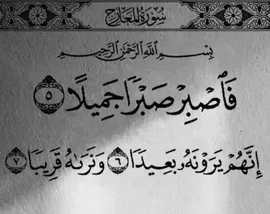 سُورَةُ المَعَارِجِ
بِسْمِ اللَّهِ الرَّحْمَٰنِ الرَّحِيمِ
فَٱصْبِرْ صَبْرًا جَمِيلًا ٥
إِنَّهُمْ يَرَوْنَهُۥ بَعِيدًا ٦ وَنَرَىٰهُ قَرِيبًا ٧